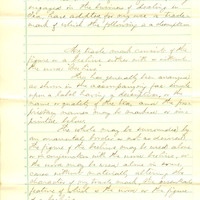 engaged in the business of dealing in
tea, have adopted for my use a trade
mark of which the following is a description
My trade mark consists of the
figure or a beehive with or without
the words
This has generally been arranged
as shown in the accompanying fac simile
upon a label having a description, the
name or quality of the tea and the pro-
prietors names may be marked or im-
printed below
The whole may be surrounded by
an ornamental border or not as desired.
The figure of the beehive may be used alone
or in conjunction with the words beehive, or
the words may be used alone in some
cases without materially altering the
character of my trade mark, the essential
feature of which is the word or the figure